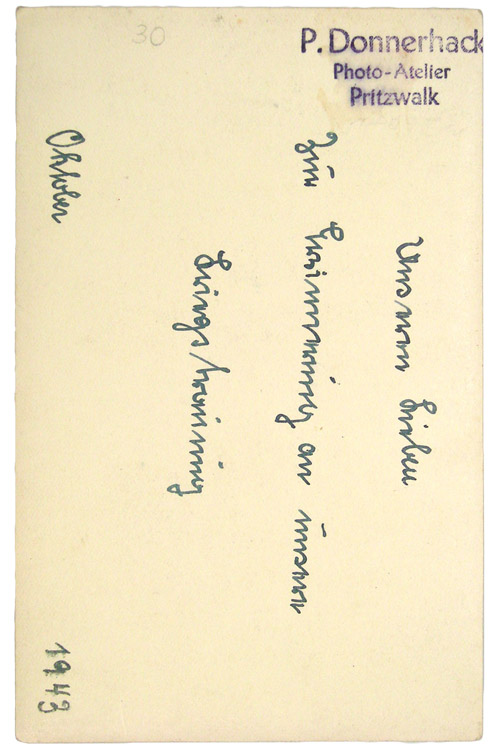 30
P. Donnerhack
Photo-Atelier
Pritzwalk
Unseren Lieben
Zur Erinnerung an unsere
Kriegstrauung
Oktober 1943